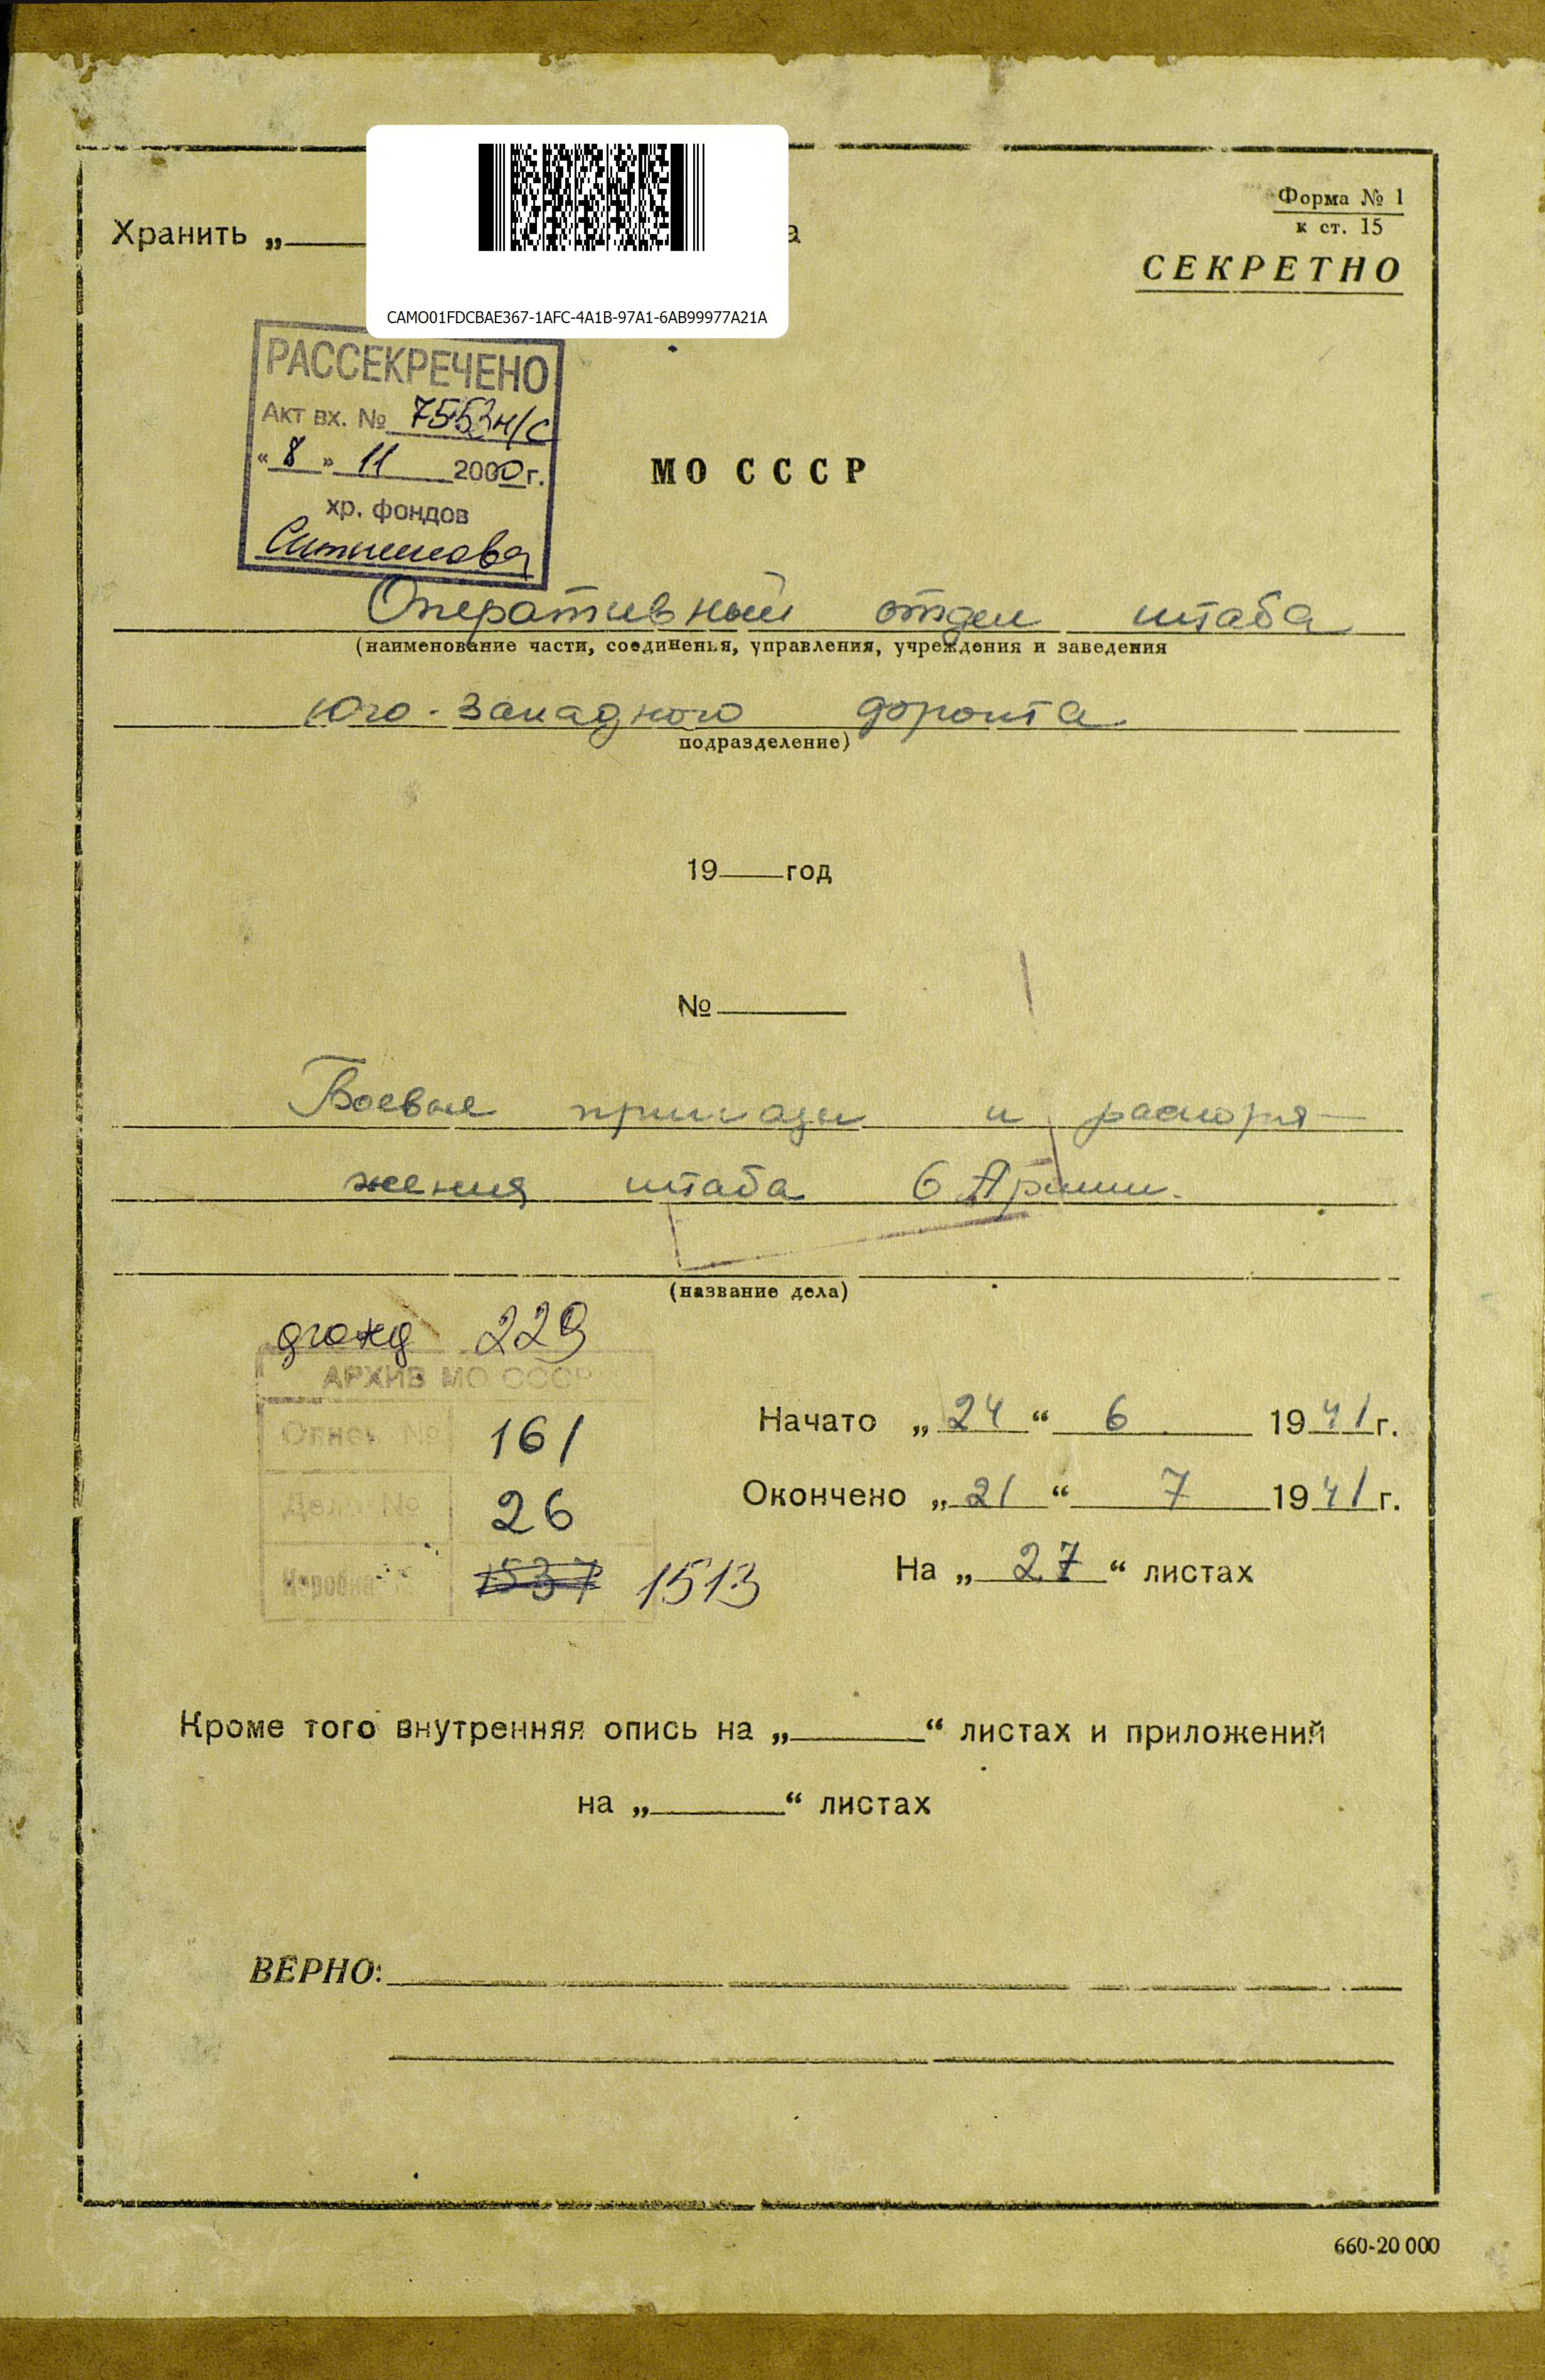 Форма № 1
к ст. 15
Хранить „ а
СЕКРЕТНО
CAMO01FDCBAE367-1AFC-4A1B-97A1-6AB99977A21A
РАССЕКРЕЧЕНО
Акт вх. № 7553н/с
« 8 » 11 2000г.
хр. фондов
МО СССР
Оперативный отдел штаба
(наименование части, соединенья, управления, учреждения и заведения
Юго-Западного фронта
подразделение)
19 год
№
Боевые приказы и распоря-
жения штаба 6 Армии.
(название дела)
фонд 229
АРХИВ МО СССР
Опись № 161
Дело № 26
Коробка 1537 1513
Начато „ 24 “ 6 1941г.
Окончено „ 21 “ 7 1941г.
На „ 27 “ листах
Кроме того внутренняя опись на „ “ листах и приложений
на „ “ листах
ВЕРНО:
660-20 000